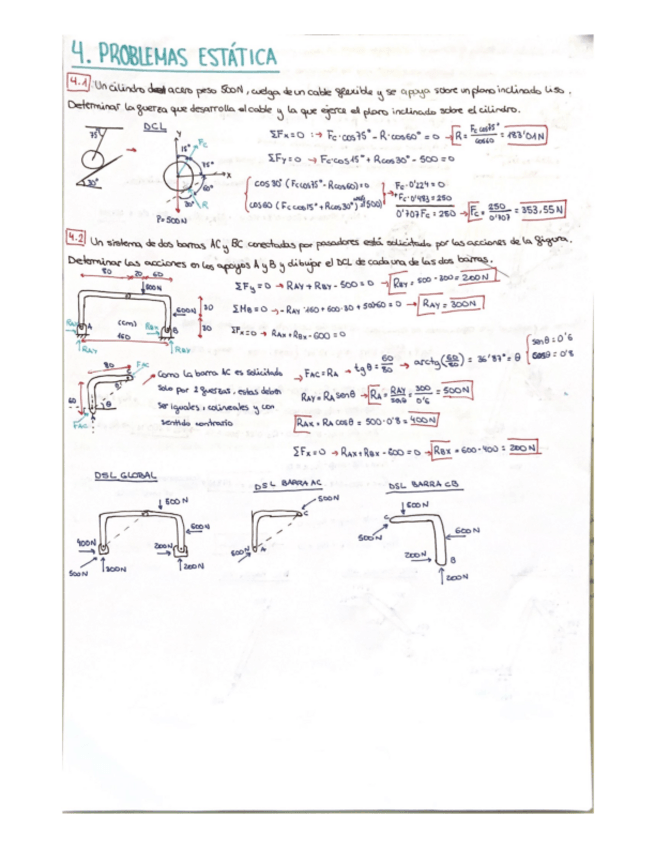 4. PROBLEMAS ESTÁTICA
4.1 Un cilindro de acero peso 500N, cuelga de un cable flexible y se apoya sobre un plano inclinado liso.
Determinar la fuerza que desarrolla el cable y la que ejerce el plano inclinado sobre el cilindro.
DCL
75°
30°
Y
15°
Fc
75°
X
60°
30°
R
P=500N
ΣFx=0 :→ Fc·cos75° - R·cos60° = 0 → R = Fc cos75° / cos60 = 183'01N
ΣFy=0 → Fc·cos15° + Rcos30° - 500 = 0
cos30° (Fc cos75° - Rcos60) = 0
cos60 (Fc cos15° + Rcos30° 500)
Fc·0'224 = 0
+Fc·0'483 = 250
0'707Fc = 250 → Fc = 250 / 0'707 = 353,55N
4.2 Un sistema de dos barras AC y BC conectadas por pasadores está solicitado por las acciones de la figura.
Determinar las acciones en los apoyos A y B y dibujar el DCL de cada una de las dos barras.
80 20 60
500N
600N
30
30
RAX A (cm) RBX B
160
RAY RBY
ΣFy=0 → RAY + RBY - 500 = 0 → RBY = 500 - 300 = 200N
ΣMB=0 → -RAY·160 + 600·30 + 500·60 = 0 → RAY = 300N
ΣFx=0 → RAX + RBX - 600 = 0
80 FAC
60
θ
A
FAC
Como la barra AC es solicitada
solo por 2 fuerzas, estas deben
ser iguales, colineales y con
sentido contrario
→ FAC = RA → tgθ = 60/80 → arctg(60/80) = 36'87° = θ
senθ = 0'6
cosθ = 0'8
RAY = RA senθ → RA = RAY / senθ = 300 / 0'6 = 500N
RAX = RA cosθ = 500·0'8 = 400N
ΣFx=0 → RAX + RBX - 600 = 0 → RBX = 600 - 400 = 200N
DSL GLOBAL
500N
600N
400N
200N
500N
300N
200N
DSL BARRA AC
500N
C
500N
A
DSL BARRA CB
500N
C
500N
600N
200N
B
200N